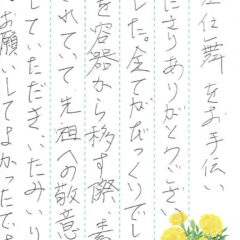 仕舞をお手伝い
ださりありがとうござい
した。全てがびっくりでし
を容器から移す際、素
されていて、先祖への敬意
していただき、いたみいり
お願いしてよかったです